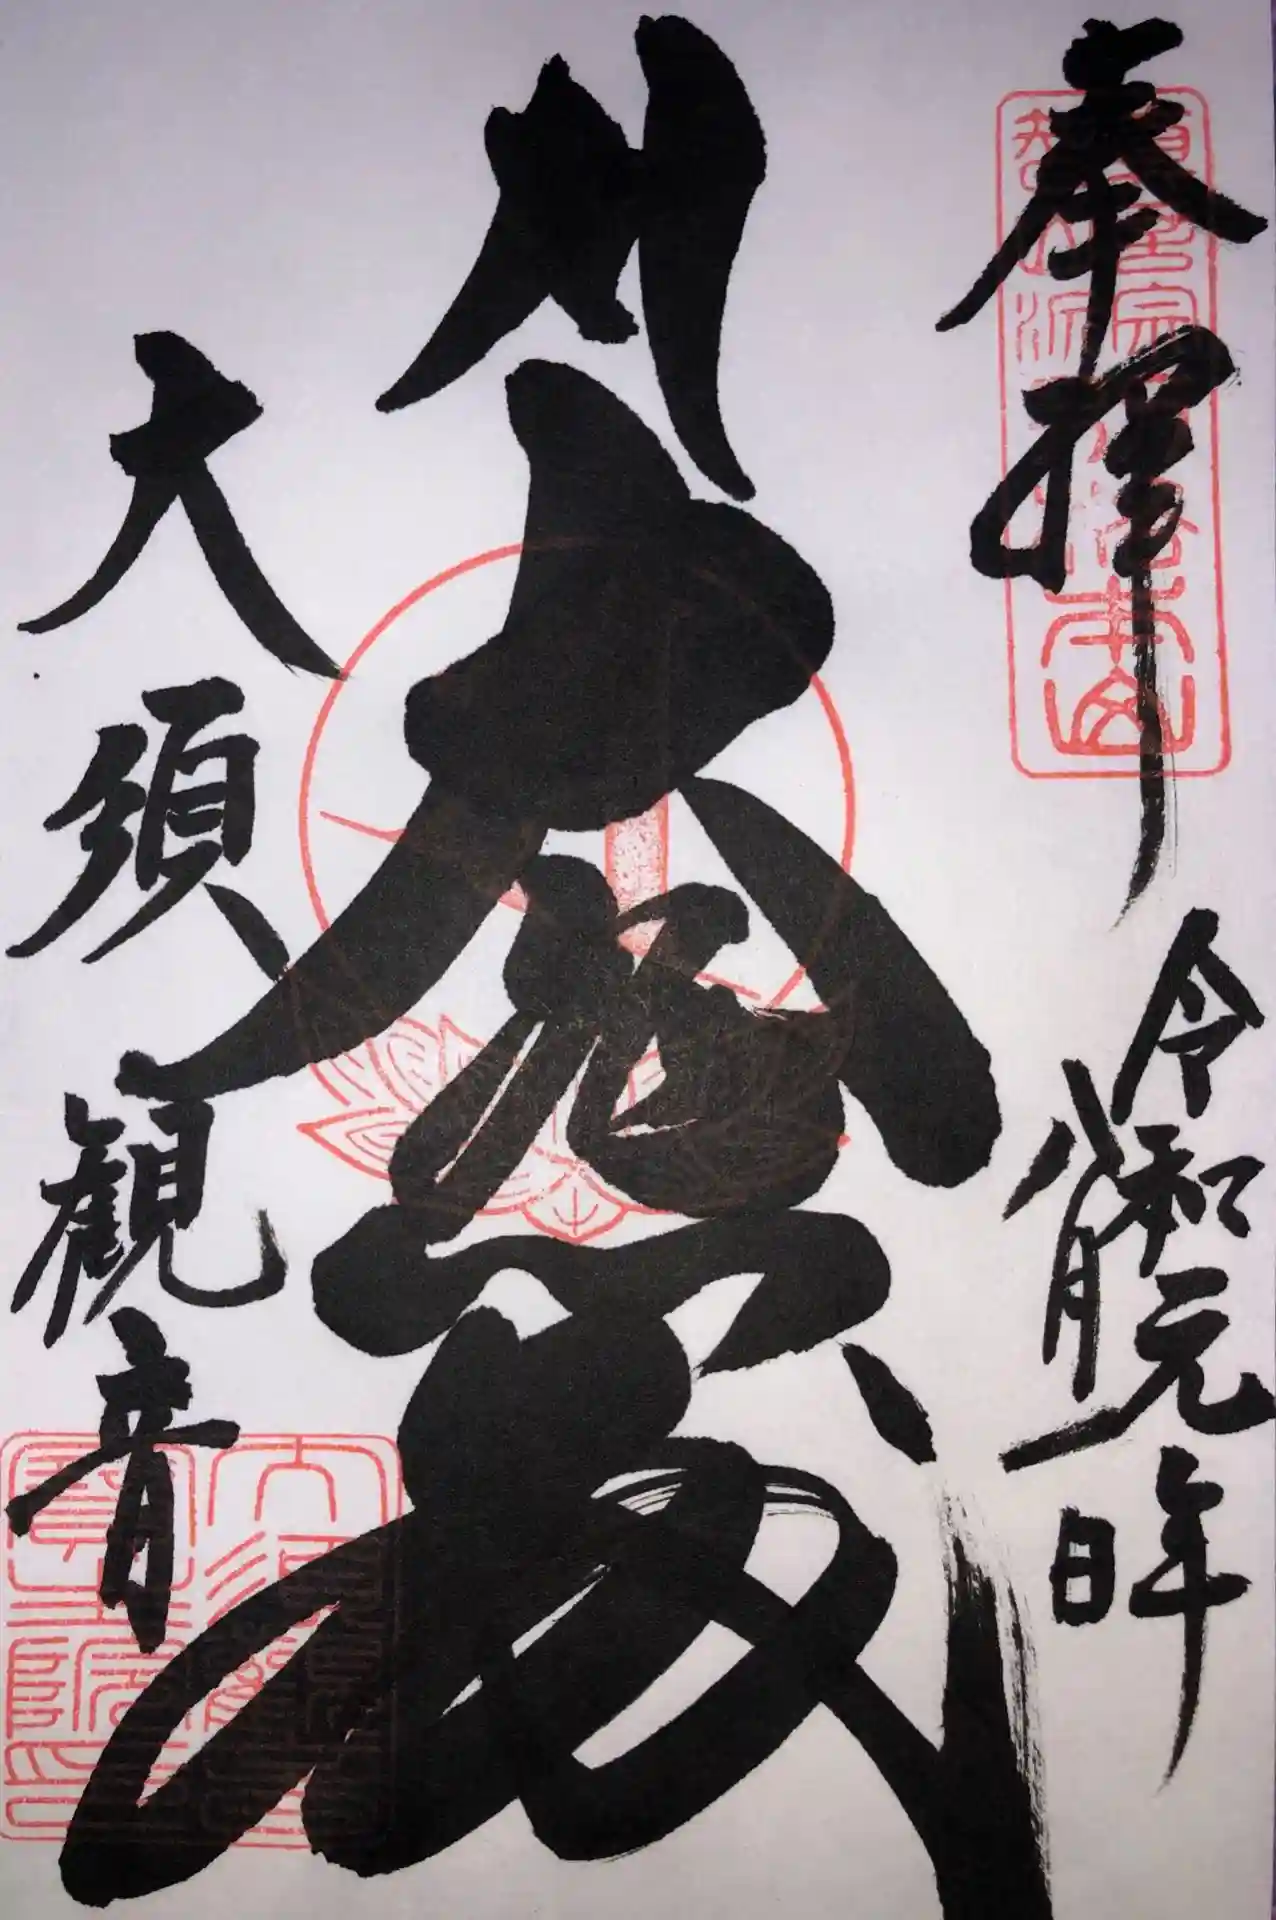 奉拝
令和元年
八月一日
大悲殿
大須観音